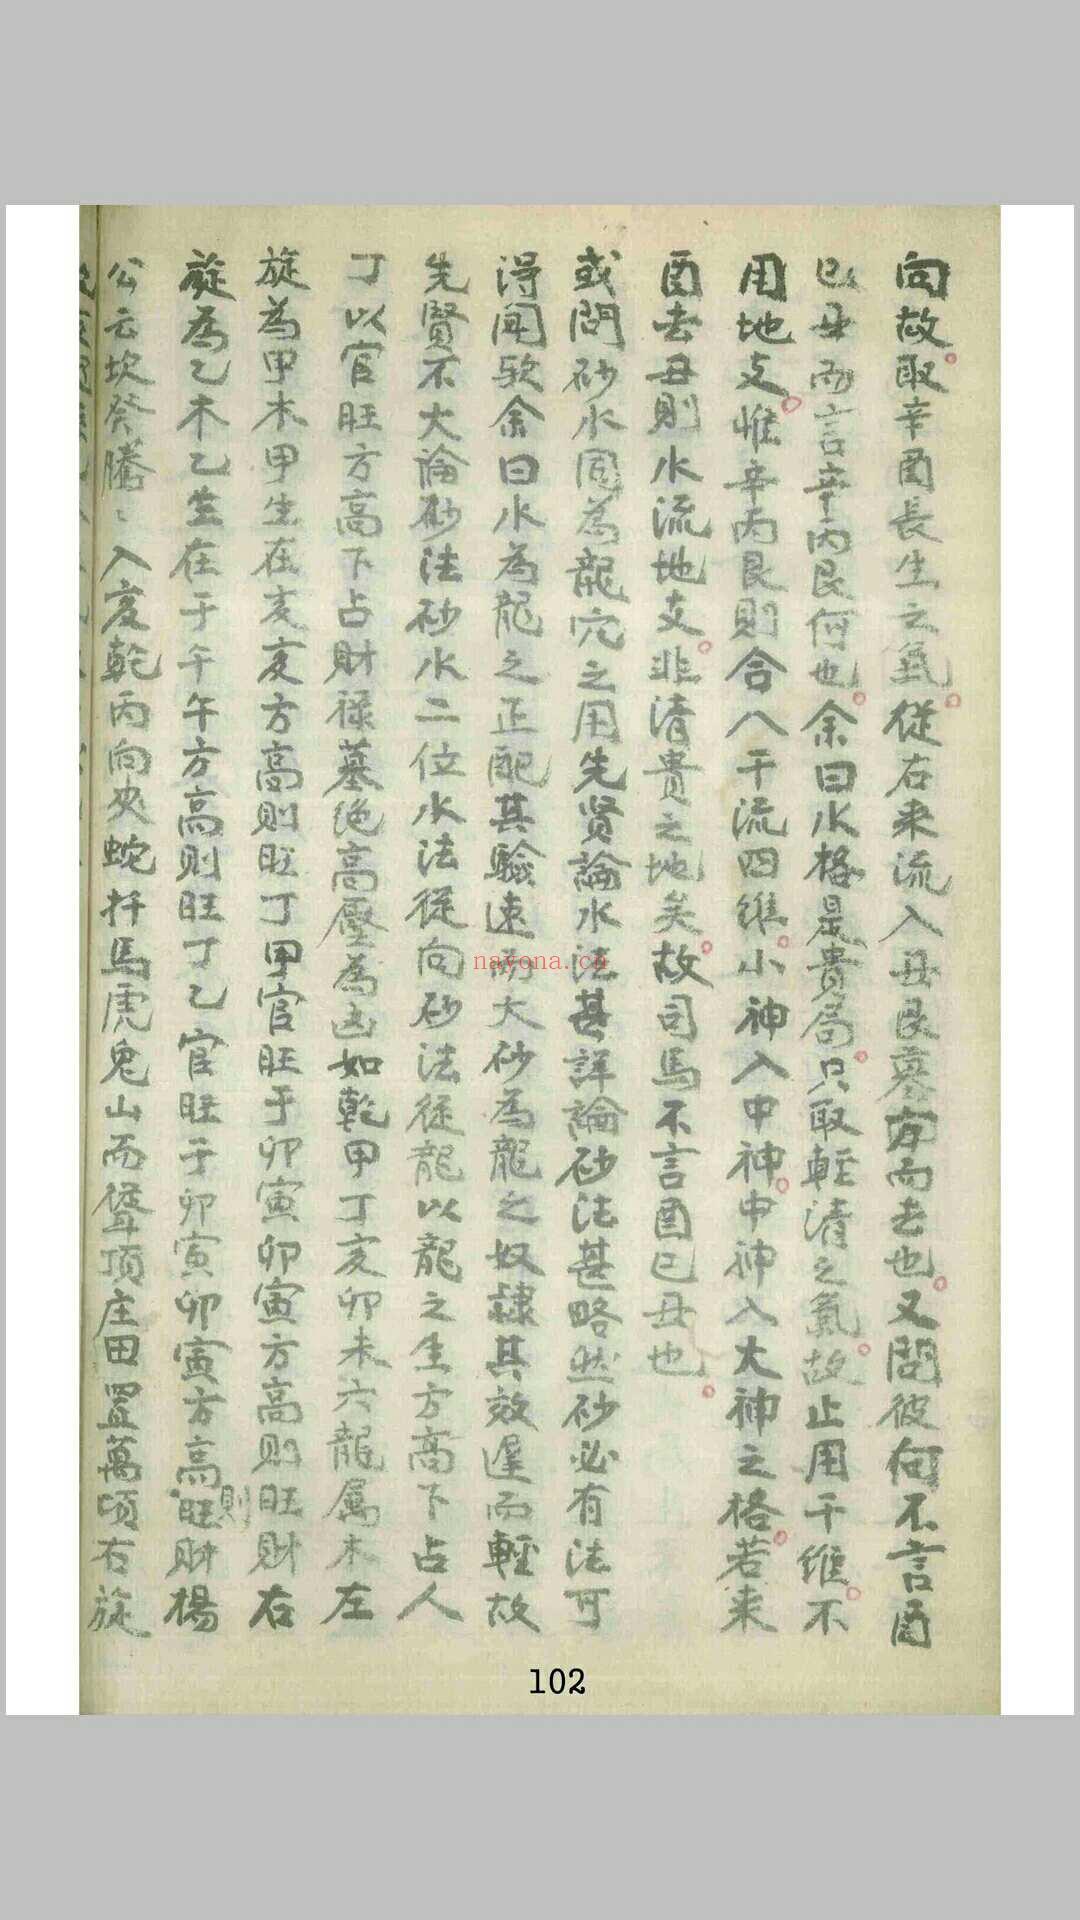 向故取辛酉長生之氣從右來流入丑艮墓方而去也又問彼向不言酉
巳丑而言辛丙艮何也余曰水格是貴局只取輕清之氣故止用干維不
用地支惟辛丙艮則合八干流四維小神入中神中神入大神之格若來
酉去丑則水流地支非清貴之地矣故司馬不言酉巳丑也
或問砂水同為龍穴之用先贤論水法甚詳論砂法甚略然砂必有法可
得聞欤余曰水為龍之正配其驗速而大砂為龍之奴隸其效遲而輕故
先賢不大論砂法砂水二位水法從向砂法從龍以龍之生方高下占人
丁以官旺方高下占財祿墓绝高壓為凶如乾甲丁亥卯未六龍屬木左
旋為甲木甲生在亥亥方高則旺丁甲官旺于卯寅卯寅方高則旺財右
旋為乙木乙生在于午午方高則旺丁乙官旺于卯寅卯寅方高則旺財楊
公云坎癸騰〻入亥乾丙向夾蛇扦馬虎鬼山而聳頂庄田置萬頃右旋
nayona.cn
102